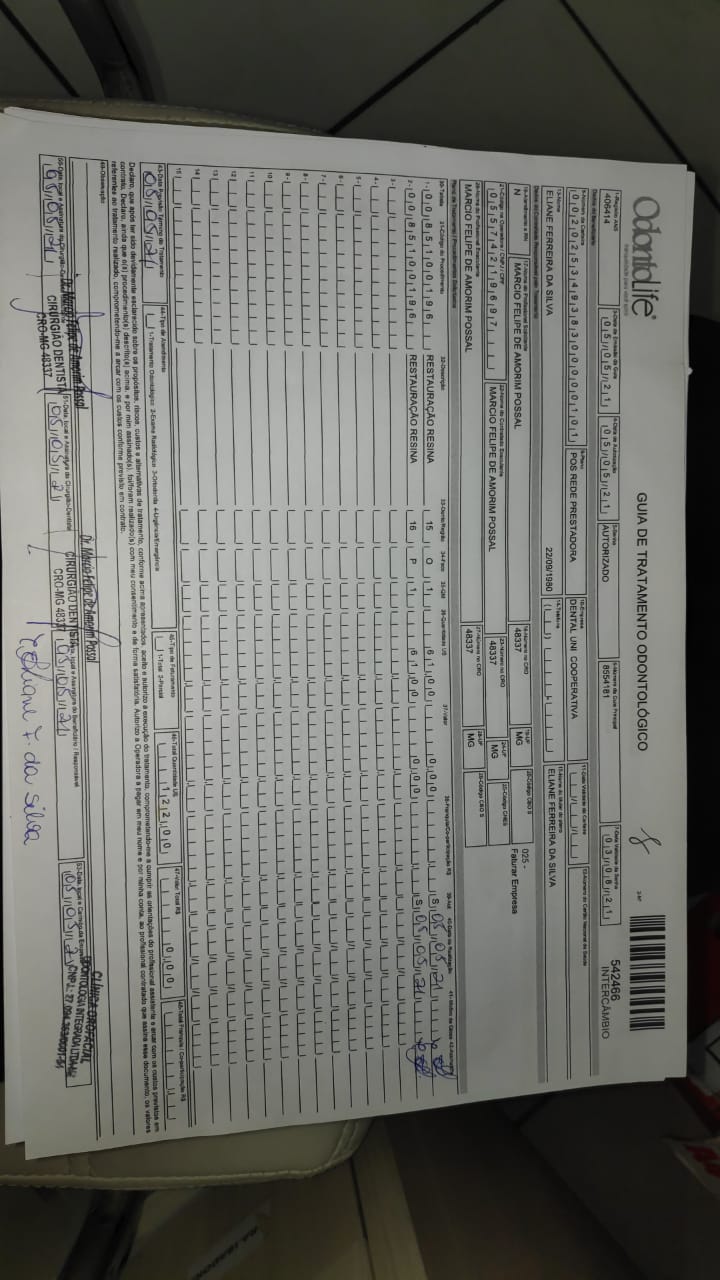 OdontoLife®
GUIA DE TRATAMENTO ODONTOLÓGICO
542466
INTERCÂMBIO
1-Registro ANS
406414
3-Data de Emissão da Guia
05/05/21
4-Data de Autorização
05/05/21
5-Senha
AUTORIZADO
6-Número da Guia Principal
8554181
7-Data Validade da Senha
03/08/21
Dados do Beneficiário
8-Número da Carteira
9-Plano
POS REDE PRESTADORA
10-Empresa
DENTAL UNI COOPERATIVA
11-Data Validade da Carteira
12-Número do Cartão Nacional de Saúde
13-Nome
ELIANE FERREIRA DA SILVA
22/09/1980
14-Telefone
15-Nome do titular do plano
ELIANE FERREIRA DA SILVA
Dados do Contratado Responsável pelo Tratamento
16-Atendimento a RN
N
17-Nome do Profissional Solicitante
MARCIO FELIPE DE AMORIM POSSAL
18-Número no CRO
48337
19-UF
MG
20-Código CBO S
025 -
Faturar Empresa
21-Código na Operadora / CNPJ / CPF
05574219697
22-Nome do Contratado Executante
MARCIO FELIPE DE AMORIM POSSAL
23-Número no CRO
48337
24-UF
MG
25-Código CNES
26-Nome do Profissional Executante
MARCIO FELIPE DE AMORIM POSSAL
27-Número no CRO
48337
28-UF
MG
29-Código CBO S
Plano de Tratamento / Procedimentos Solicitados
30-Tabela 31-Código do Procedimento 32-Descrição 33-Dente/Região 34-Face 35-Qtd 36-Quantidade US 37-Valor 38-Franquia/Co-participação R$ 39-Aut 40-Data de Realização 41-Motivo da Glosa 42-Assinatura
1- 00 85100196 RESTAURAÇÃO RESINA 15 O 1 61,00 0,00 S 05/05/21
2- 00 85100196 RESTAURAÇÃO RESINA 16 P 1 61,00 0,00 S 05/05/21
3-
4-
5-
6-
7-
8-
9-
10
11
12
13
14
15
43-Data Previsão Término do Tratamento
05/05/21
44-Tipo de Atendimento
1-Tratamento Odontológico 2-Exame Radiológico 3-Ortodontia 4-Urgência/Emergência
45-Tipo de Faturamento
1-Total 2-Parcial
46-Total Quantidade US
122,00
47-Valor Total R$
0,00
48-Total Franquia / Co-participação R$
Declaro, que após ter sido devidamente esclarecido sobre os propósitos, riscos, custos e alternativas de tratamento, conforme acima apresentados, aceito e autorizo a execução do tratamento, comprometendo-me a cumprir as orientações do profissional assistente e arcar com os custos previstos em
contrato. Declaro, ainda que o(s) procedimento(s) descrito(s) acima, e por mim assinado(s), foi/foram realizado(s) com meu consentimento e de forma satisfatória. Autorizo a Operadora a pagar em meu nome e por minha conta, ao profissional contratado que assina esse documento, os valores
referentes ao tratamento realizado, comprometendo-me a arcar com os custos conforme previsto em contrato.
49-Observação
Dr. Marcio Felipe de Amorim Possal
CIRURGIÃO DENTISTA
CRO-MG 48337
05/05/21
51-Data, local e Assinatura do Cirurgião-Dentista
05/05/21
Dr. Marcio Felipe de Amorim Possal
CIRURGIÃO DENTISTA
CRO-MG 48337
Data, local e Assinatura do Beneficiário / Responsável
05/05/21
Eliane F. da Silva
53-Data, local e Carimbo da Empresa
05/05/21
CLÍNICA OROFACIAL
ODONTOLOGIA INTEGRADA LTDA